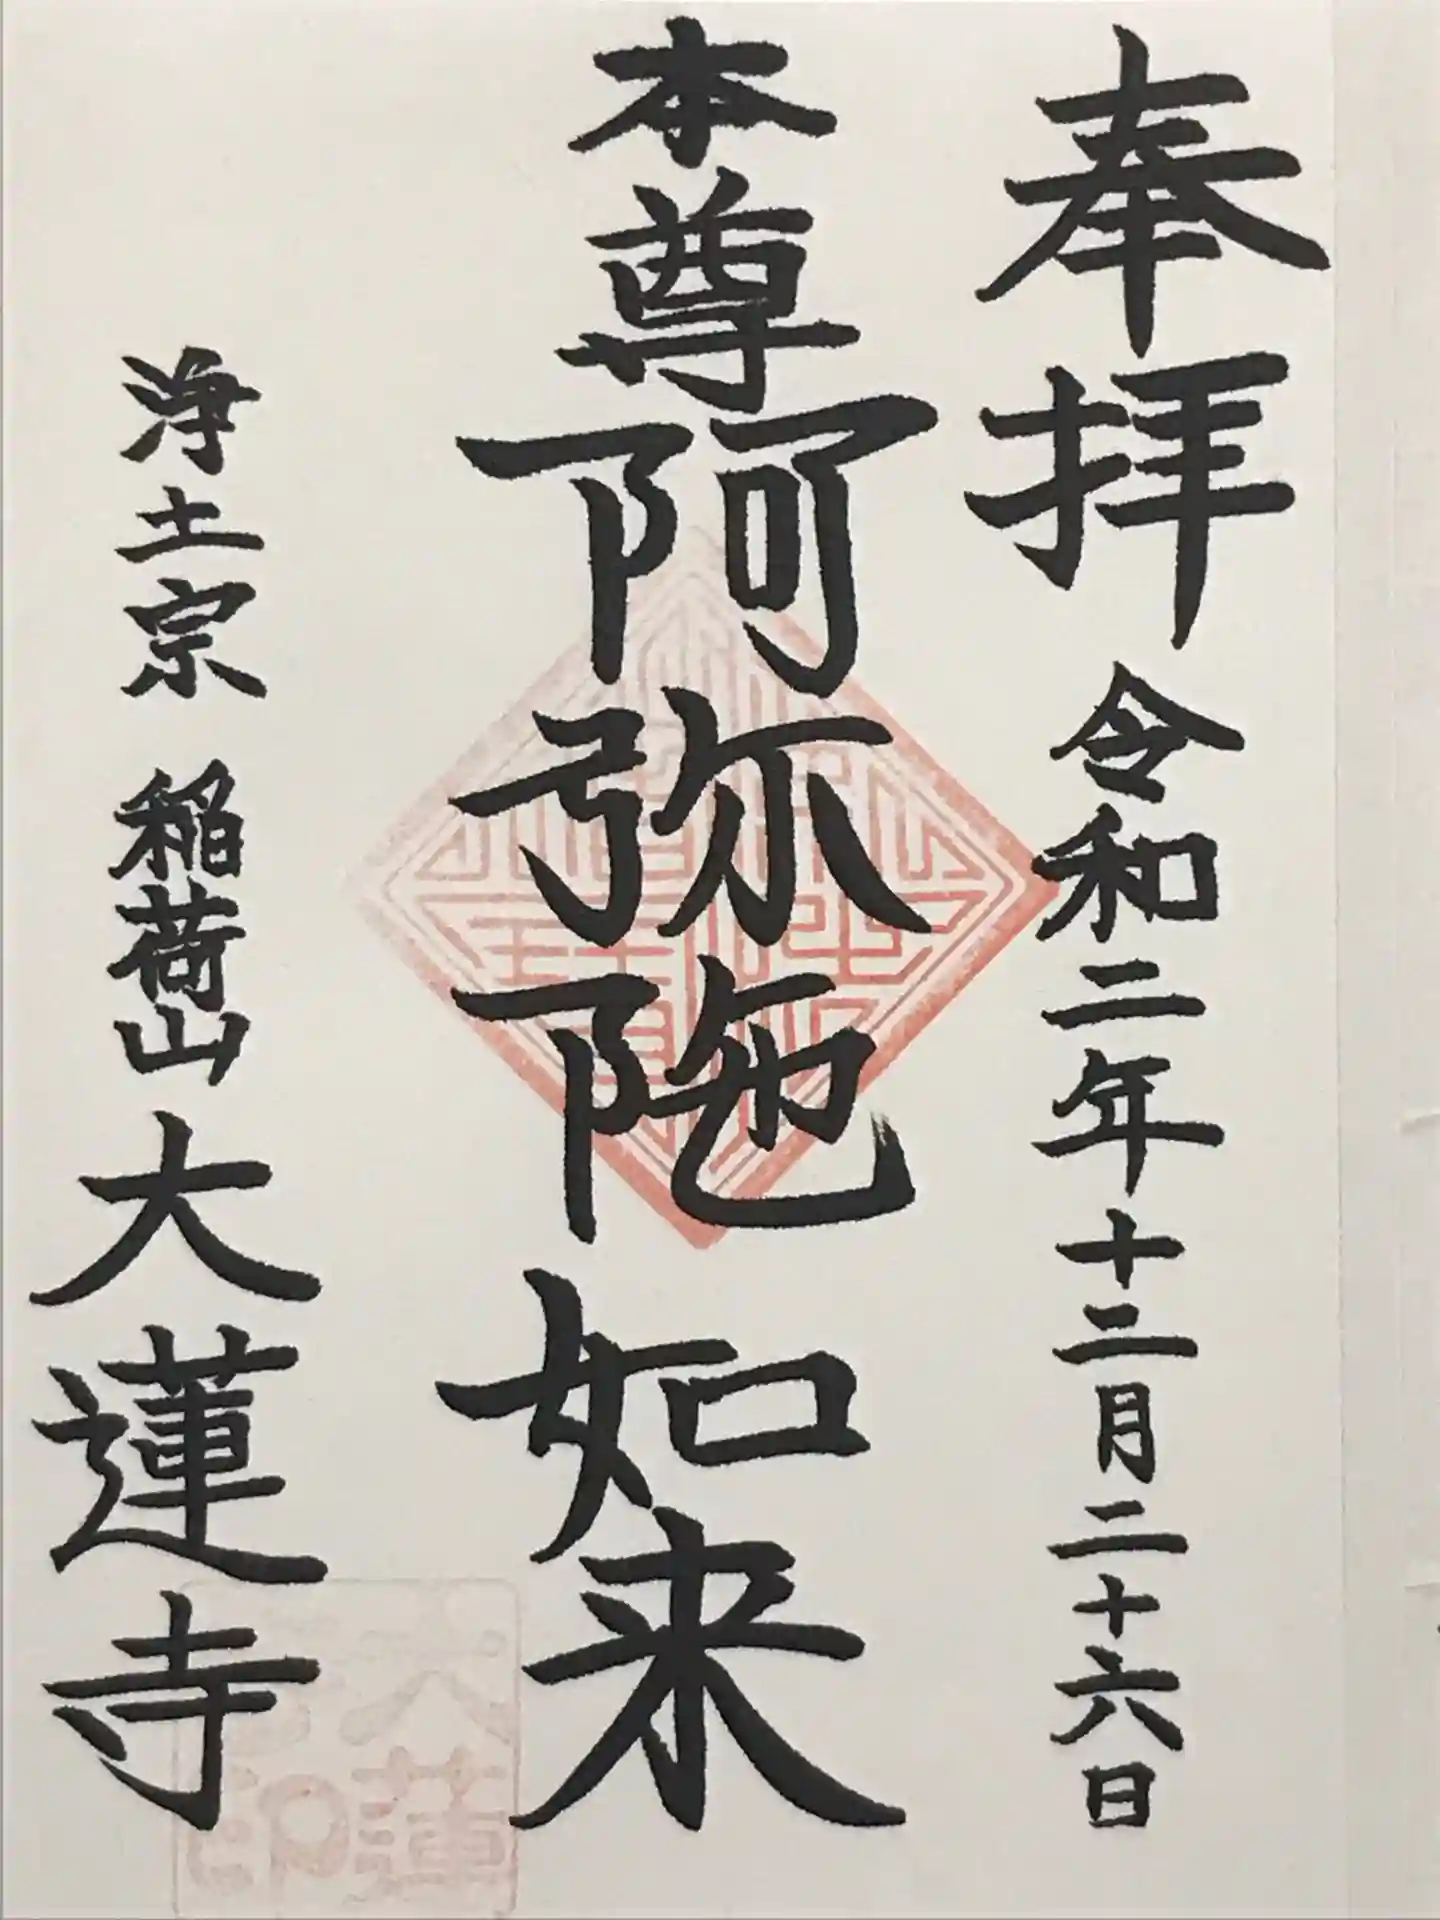 奉拝 令和二年十二月二十六日
本尊阿弥陀如来
浄土宗 稲荷山大蓮寺
大蓮寺印